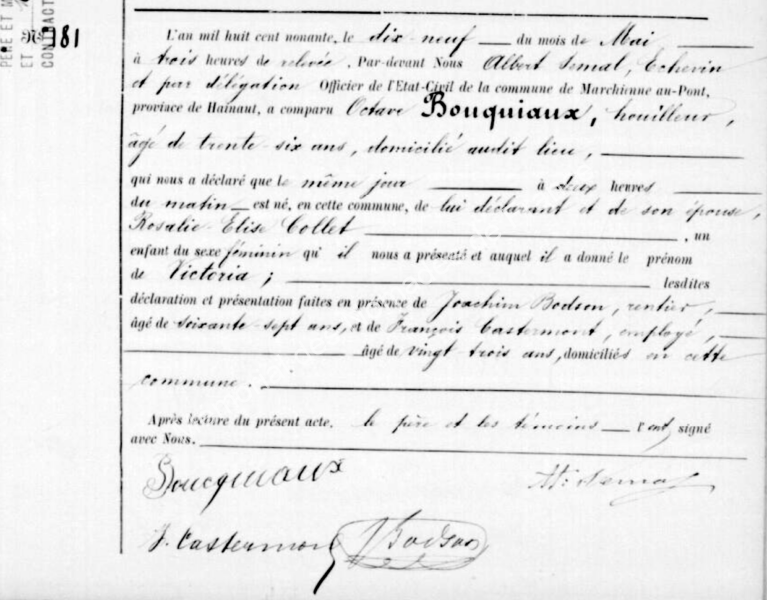 PÈRE ET M
ET
CONTRACT
N° 181
L'an mil huit cent nonante, le dix-neuf du mois de Mai
à trois heures de relevée. Par-devant Nous Albert Semal, Echevin
et par délégation Officier de l'Etat-Civil de la commune de Marchienne au-Pont,
province de Hainaut, a comparu Octave Bouquiaux, houilleur,
âgé de trente-six ans, domicilié audit lieu,
qui nous a déclaré que le même jour à deux heures
du matin est né, en cette commune, de lui déclarant et de son épouse,
Rosalie-Elise Collet, un
enfant du sexe féminin qu'il nous a présenté et auquel il a donné le prénom
de Victoria; lesdites
déclaration et présentation faites en présence de Joachim Bodson, rentier,
âgé de soixante-sept ans, et de François Castermont, employé,
âgé de vingt-trois ans, domiciliés en cette
commune.
Après lecture du présent acte, le père et les témoins l'ont signé
avec Nous.
Boucquiaux
Alb. Semal
F. Castermont JBodson